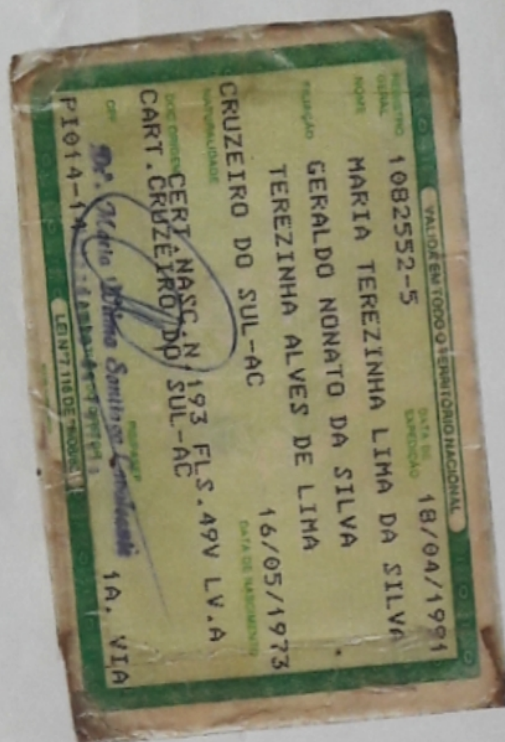 VÁLIDA EM TODO O TERRITÓRIO NACIONAL
REGISTRO GERAL 1082552-5 DATA DE EXPEDIÇÃO 18/04/1991
NOME MARIA TEREZINHA LIMA DA SILVA
FILIAÇÃO GERALDO NONATO DA SILVA
TEREZINHA ALVES DE LIMA
NATURALIDADE CRUZEIRO DO SUL-AC DATA DE NASCIMENTO 16/05/1973
DOC ORIGEM CERT.NASC.N 193 FLS.49V LV.A
CART.CRUZEIRO DO SUL-AC
CPF PIS/PASEP
PI014-14 1A. VIA
LEI Nº 7.116 DE